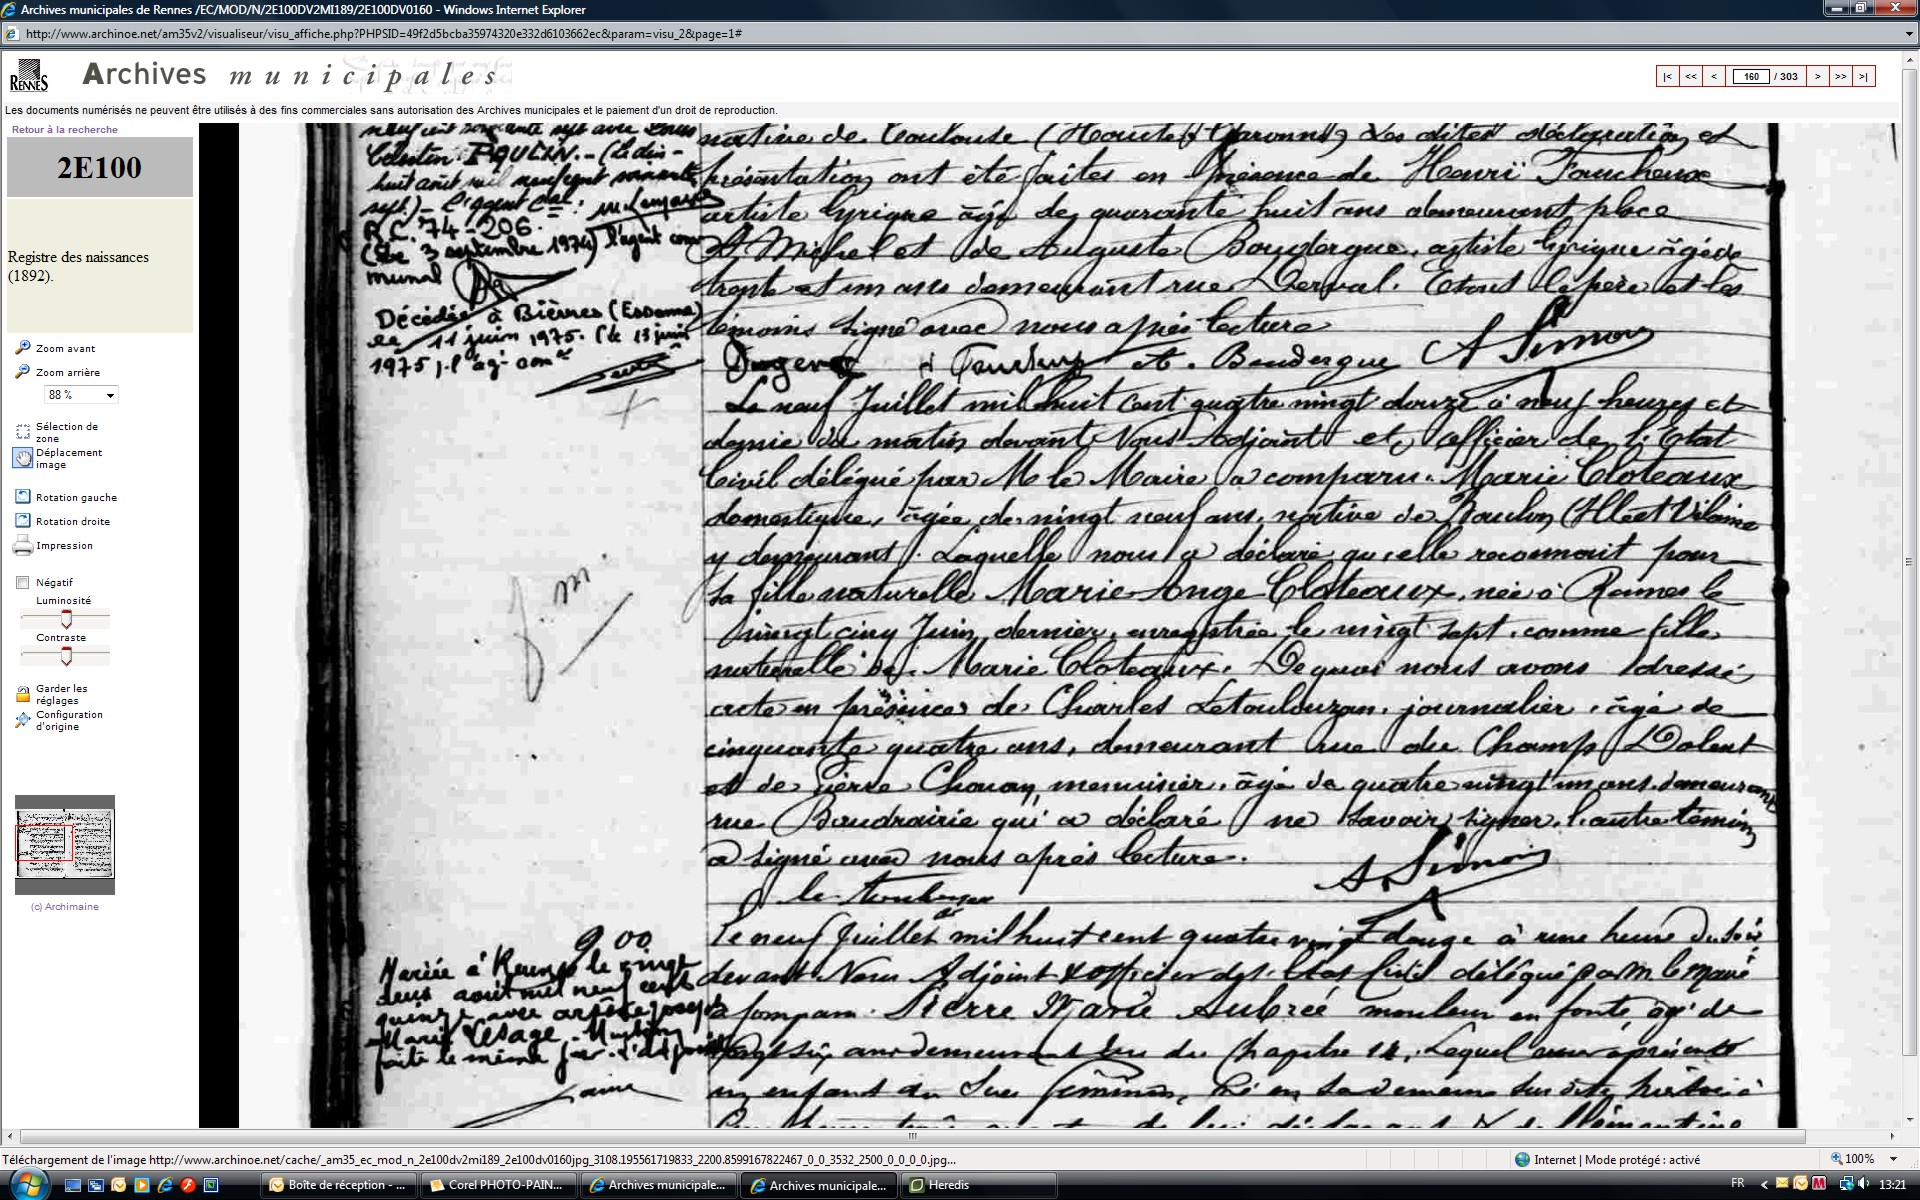 Archives municipales de Rennes /EC/MOD/N/2E100DV2MI189/2E100DV0160 - Windows Internet Explorer
http://www.archinoe.net/am35v2/visualiseur/visu_affiche.php?PHPSID=49f2d5bcba35974320e332d6103662ec&param=visu_2&page=1#
RENNES
Archives municipales
|< << < 160 / 303 > >> >|
Les documents numérisés ne peuvent être utilisés à des fins commerciales sans autorisation des Archives municipales et le paiement d'un droit de reproduction.
Retour à la recherche
2E100
Registre des naissances
(1892).
Zoom avant
Zoom arrière
88 %
Sélection de
zone
Déplacement
image
Rotation gauche
Rotation droite
Impression
Négatif
Luminosité
Contraste
Garder les
réglages
Configuration
d'origine
(c) Archimaine
neuf cent soixante sept avec Louis
Célestin PAULIN. - (le dix-
huit août mil neuf cent soixante
sept) - l'agent
R.C. 74-206.
(Le 3 septembre 1974) l'agent com
munal
Décédée à Bièvres (Essonne)
le 11 juin 1975. (le 13 juin
1975)
native de Toulouse (Haute Garonne) Les dites déclaration et
présentation ont été faites en présence de Henri Foucheux
artiste lyrique âgé de quarante huit ans demeurant place
St Michel et de Auguste Bouderque, artiste lyrique âgé de
trente et un ans demeurant rue Derval. Et ont le père et les
témoins signé avec nous après lecture
A. Bouderque A Simon
Le neuf Juillet mil huit cent quatre vingt douze à neuf heures et
demie du matin devant Nous Adjoint et officier de l'Etat
Civil délégué par M le Maire a comparu. Marie Cloteaux
domestique, âgée de vingt neuf ans, native de Baulon (Ille et Vilaine
y demeurant. Laquelle nous a déclaré qu'elle reconnait pour
sa fille naturelle Marie Ange Cloteaux, née à Rennes le
vingt cinq Juin dernier, enregistrée le vingt sept, comme fille
naturelle de Marie Cloteaux. De quoi nous avons dressé
acte en présence de Charles Letoulouzan, journalier, âgé de
cinquante quatre ans, demeurant rue du Champ Dolent
et de Pierre Chouan, menuisier, âgé de quatre vingt un ans, demeurant
rue Baudrairie qui a déclaré ne savoir signer, l'autre témoin
a signé avec nous après lecture.
A. Simon
900
Mariée à Rennes le vingt
deux août mil neuf cent
quinze avec Joseph
Marie Lesage. Mention
faite le même jour.
Le neuf Juillet mil huit cent quatre vingt douze à une heure du soir
devant Nous Adjoint & officier de l'Etat Civil délégué par M le Maire
a comparu. Pierre Marie Aubrée mouleur en fonte, âgé de
ans demeurant rue du Chapitre 12, Lequel nous a présenté
un enfant du Sexe féminin, né en sa demeure
Téléchargement de l'image http://www.archinoe.net/cache/_am35_ec_mod_n_2e100dv2mi189_2e100dv0160jpg_3108.195561719833_2200.8599167822467_0_0_3532_2500_0_0_0_0.jpg...
Internet | Mode protégé : activé
100%
Boîte de réception - ...
Corel PHOTO-PAIN...
Archives municipale...
Archives municipale...
Heredis
FR
13:21